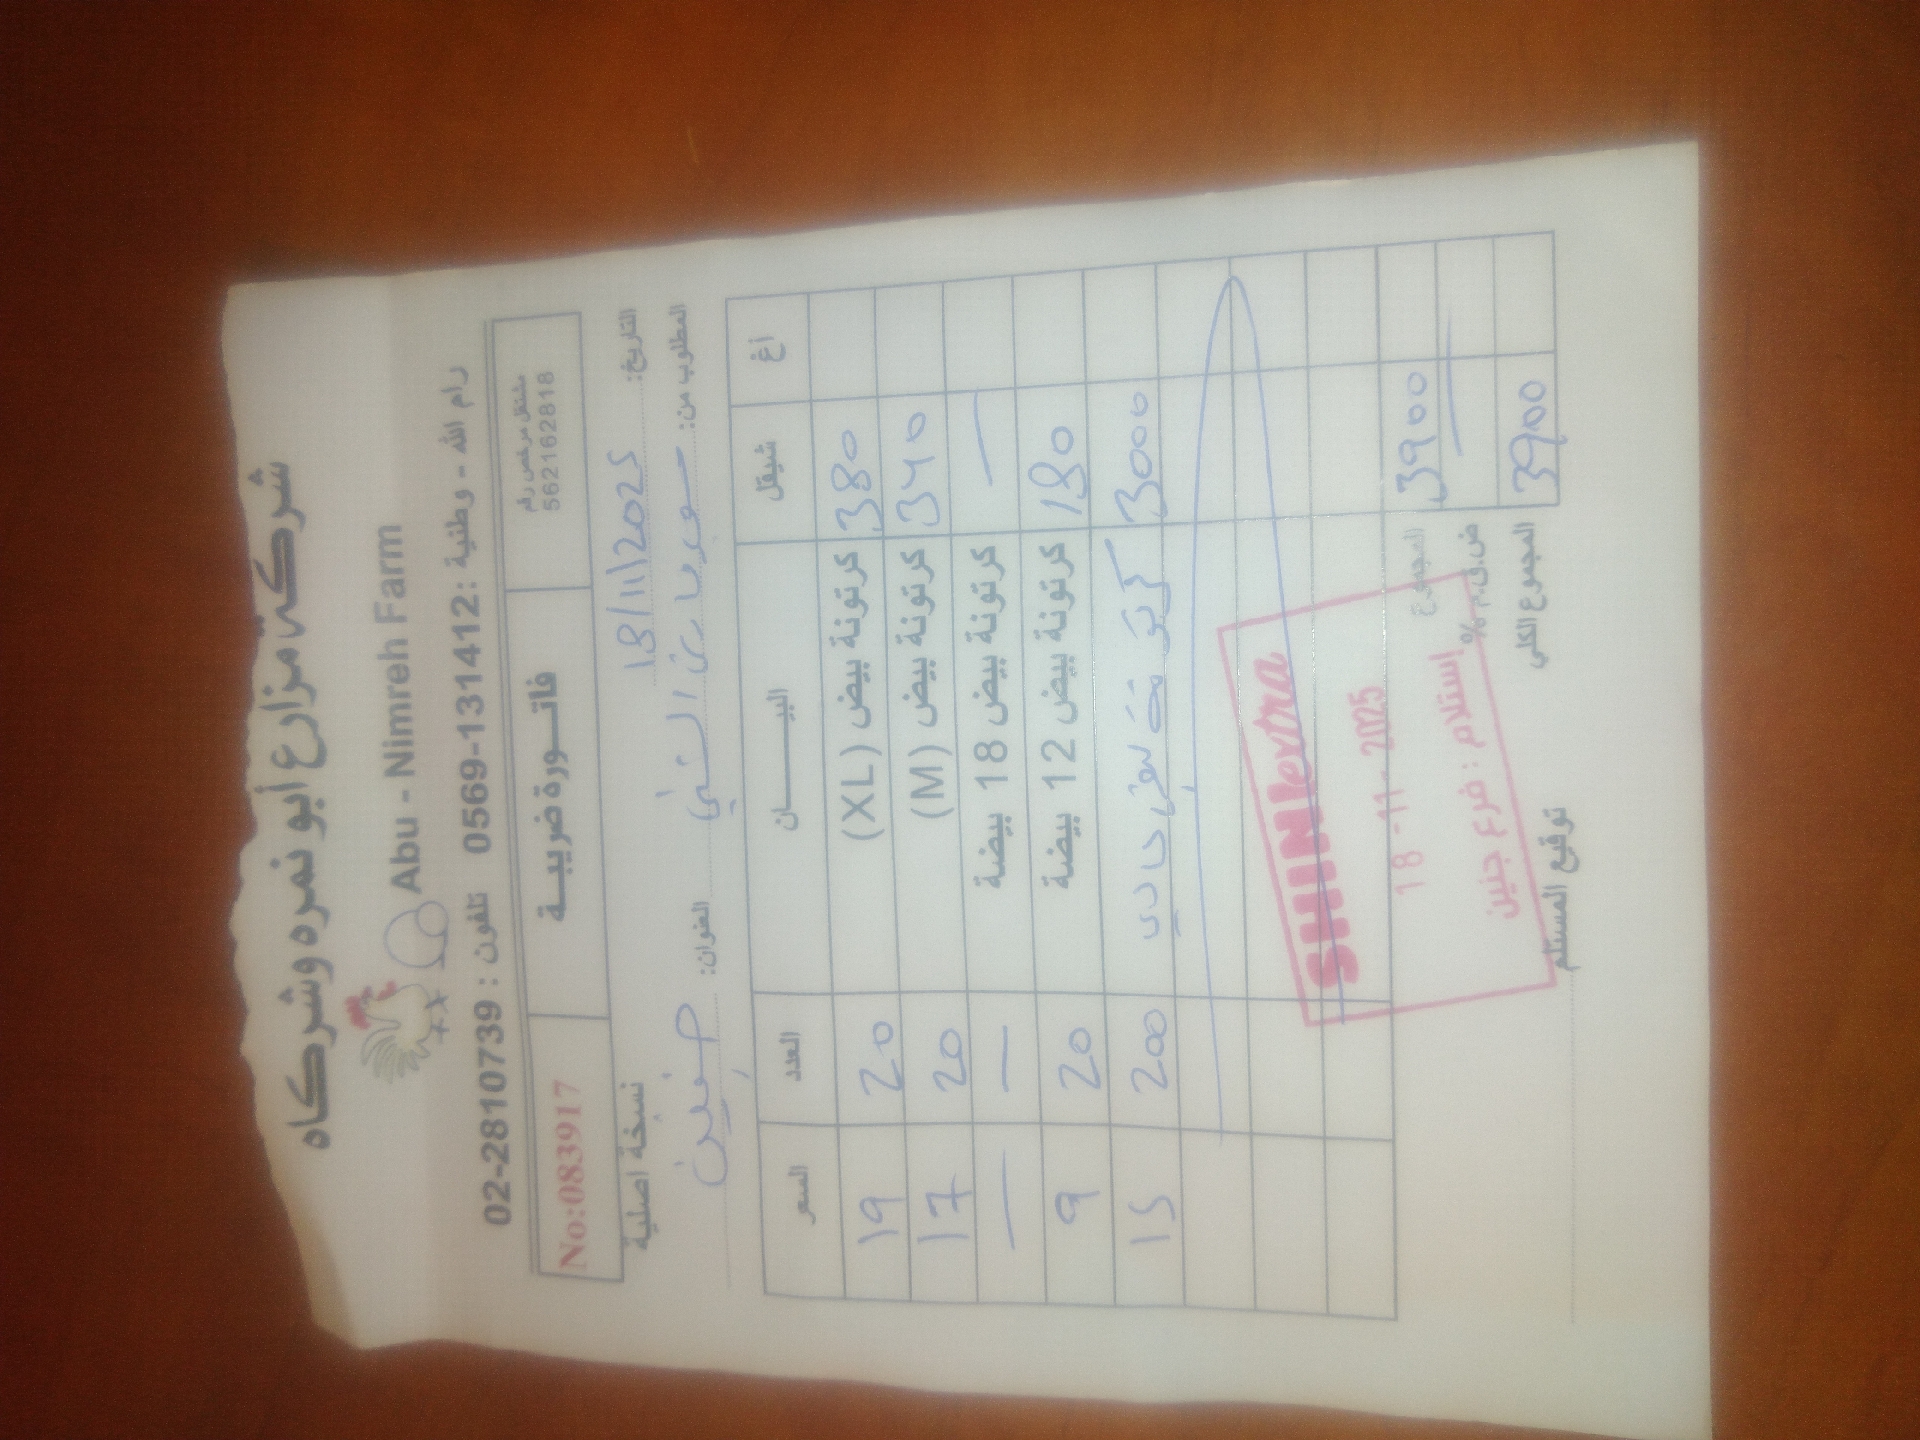 شركة مزارع أبو نمره وشركاه
Abu - Nimreh Farm
رام الله - وطنية : 0569-131412 تلفون : 02-2810739
مشتغل مرخص رقم
562162818
فاتـــورة ضريبيـــة
No:083917
التاريخ: 18/11/2025 نسخة اصلية
المطلوب من: سوبر ماركت الشني العنوان: جنين
أغ شيقل البيـــــــان العدد السعر
380 كرتونة بيض (XL) 20 19
340 كرتونة بيض (M) 20 17
— كرتونة بيض 18 بيضة — —
180 كرتونة بيض 12 بيضة 20 9
3000 بيض 200 15
المجموع 3900
ض.ق.م % —
المجموع الكلي 3900
SHINIextra
18 -11- 2025
إستلام : فرع جنين
توقيع المستلم